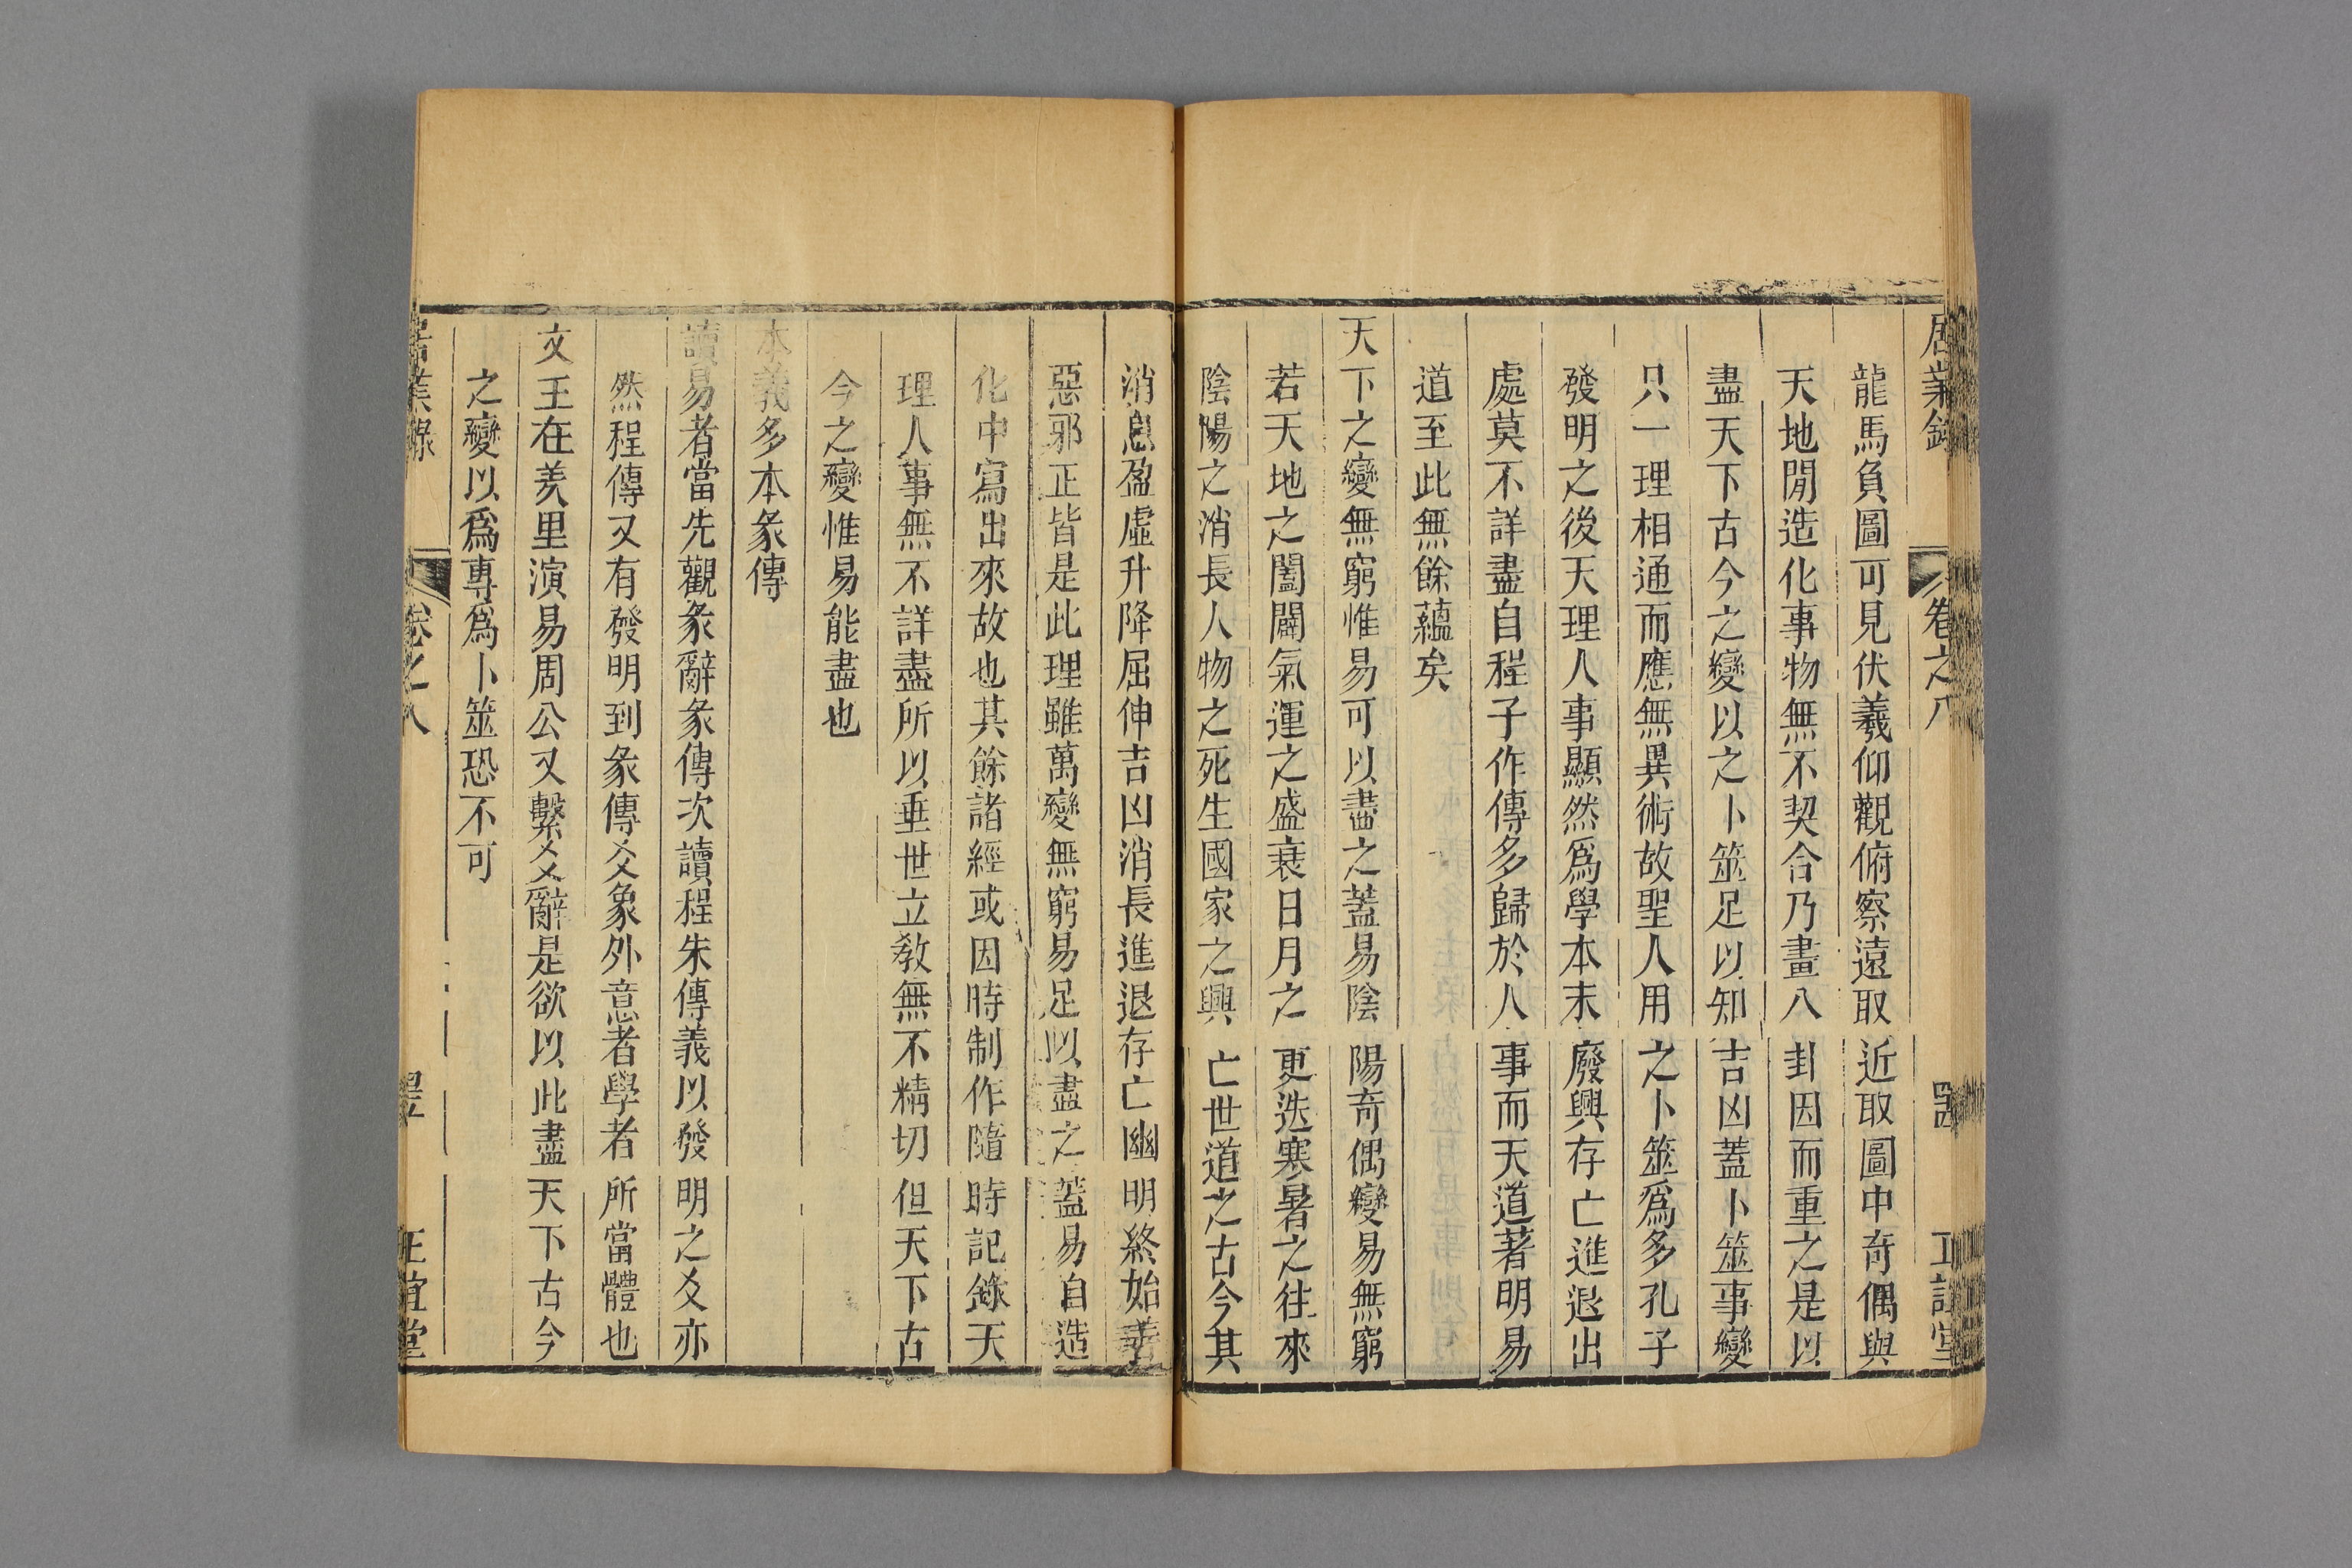 居業錄 卷之八
龍馬負圖可見伏羲仰觀俯察遠取近取圖中奇偶與
天地閒造化事物無不契合乃畫八卦因而重之是以
盡天下古今之變以之卜筮足以知吉凶蓋卜筮事變
只一理相通而應無異術故聖人用之卜筮爲多孔子
發明之後天理人事顯然爲學本末廢興存亡進退出
處莫不詳盡自程子作傳多歸於人事而天道著明易
道至此無餘蘊矣
天下之變無窮惟易可以盡之蓋易陰陽奇偶變易無窮
若天地之闔闢氣運之盛衰日月之更迭寒暑之往來
陰陽之消長人物之死生國家之興亡世道之古今其
消息盈虛升降屈伸吉凶消長進退存亡幽明終始善
惡邪正皆是此理雖萬變無窮易足以盡之蓋易自造
化中寫出來故也其餘諸經或因時制作隨時記錄天
理人事無不詳盡所以垂世立敎無不精切但天下古
今之變惟易能盡也
本義多本彖傳
讀易者當先觀彖辭彖傳次讀程朱傳義以發明之爻亦
然程傳又有發明到彖傳爻象外意者學者所當體也
文王在羑里演易周公又繫爻辭是欲以此盡天下古今
之變以爲專爲卜筮恐不可
居業錄 卷之八 正誼堂